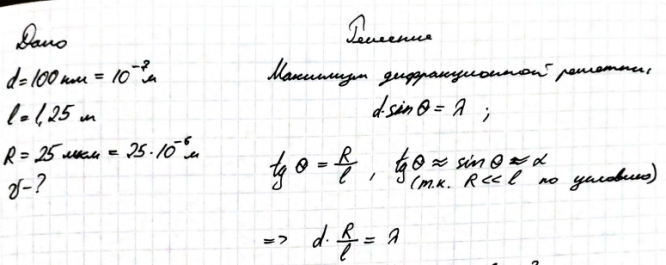 Дано
d = 100 нм = 10⁻⁷ м
l = 1,25 м
R = 25 мкм = 25·10⁻⁶ м
γ - ?
Решение
Максимум дифракционной решетки:
d·sin θ = λ ;
tg θ = R/l , tg θ ≈ sin θ ≈ α
(т.к. R << l по условию)
=> d· R/l = λ